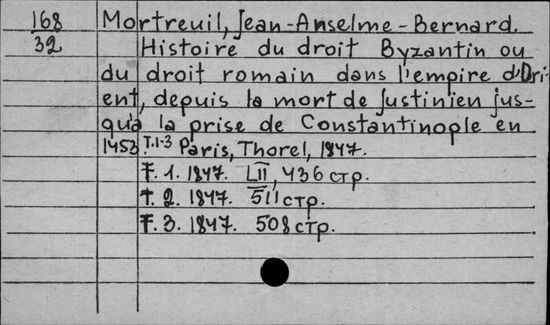 168
32
Mortreuil, Jean-Anselme-Bernard.
Histoire du droit Byzantin ou
du droit romain dans l'empire d'Ori-
ent, depuis la mort de Justinien jus-
qu'a la prise de Constantinople en
1453 T.1-3 Paris, Thorel, 1847.
T. 1. 1847. LII, 436 стр.
T. 2. 1847. 511 стр.
T. 3. 1847. 508 стр.